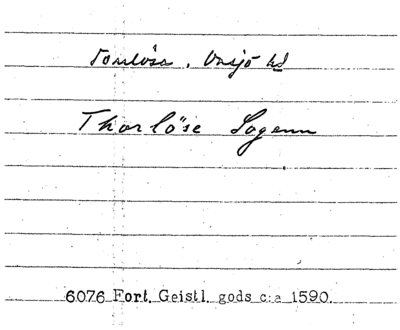 Torrlösa, Onsjö hd
Thorlöse Sogenn
6076 Fort. Geistl. gods c:a 1590.